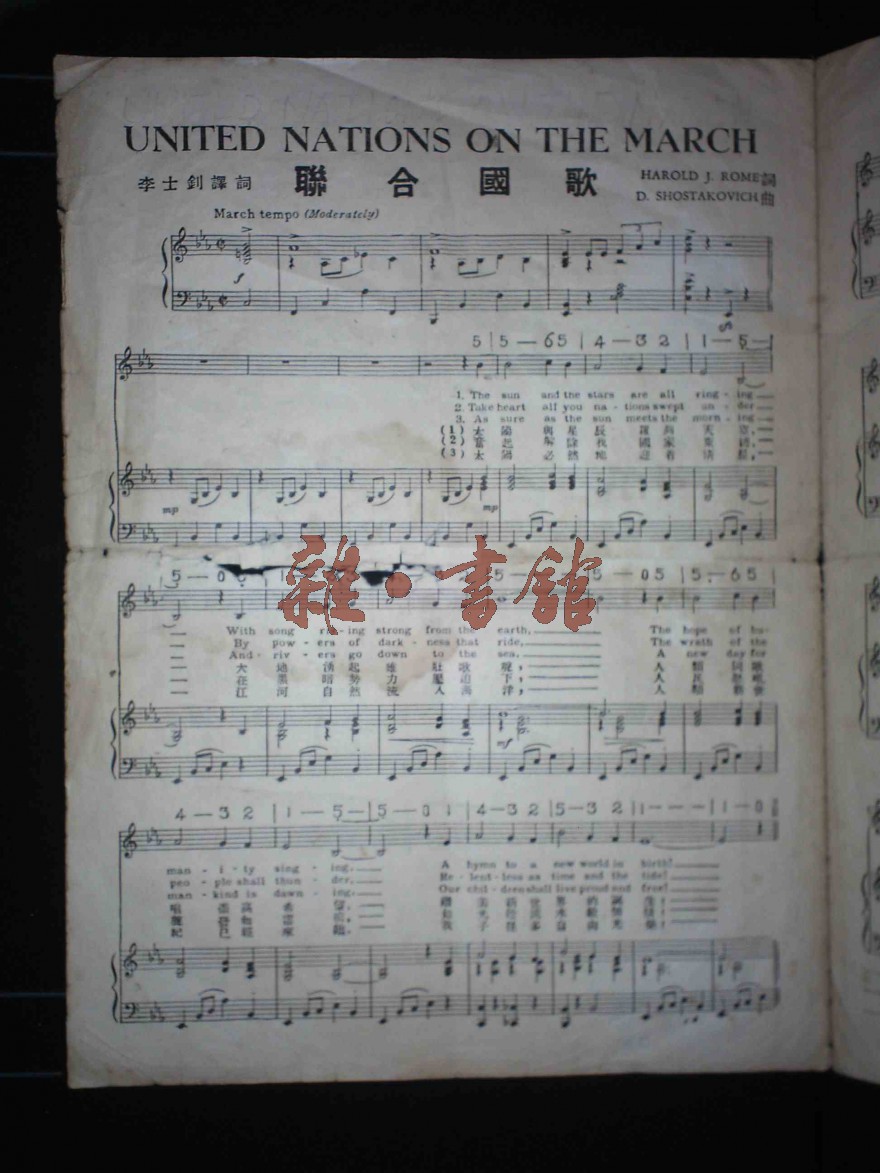 UNITED NATIONS ON THE MARCH
李士釗譯詞 聯合國歌 HAROLD J. ROME詞
D. SHOSTAKOVICH曲
March tempo (Moderately)
f
5 | 5 — 6 5 | 4 — 3 2 | 1 — 5 —
1. The sun and the stars are all ringing
2. Take heart all you na - tions swept un - der
3. As sure as the sun meets the morn - ing
(1) 太陽與星長
(2)
(3) 太陽必然地迎着清晨,
mp mp
雜·書館
5 — 0 5 | 5. 6 5
With song ris - ing strong from the earth, The hope of hu-
By pow - ers of dark - ness that ride, The wrath of the
And riv - ers go down to the sea, A new day for
大地湧起雄壯歌聲, 人類同歌
在黑暗勢力壓迫下, 人民怒吼
江河自然流入海洋, 人類
mf
4 — 3 2 | 1 — 5 — | 5 — 0 1 | 4 — 3 2 | 5 — 3 2 | 1 — — — | 1 — 0
man - i - ty sing - ing. A hymn to a new world in birth!
peo - ple shall thun - der, Re - lent - less as time and the tide!
man - kind is dawn - ing. Our chil - dren shall live proud and free!